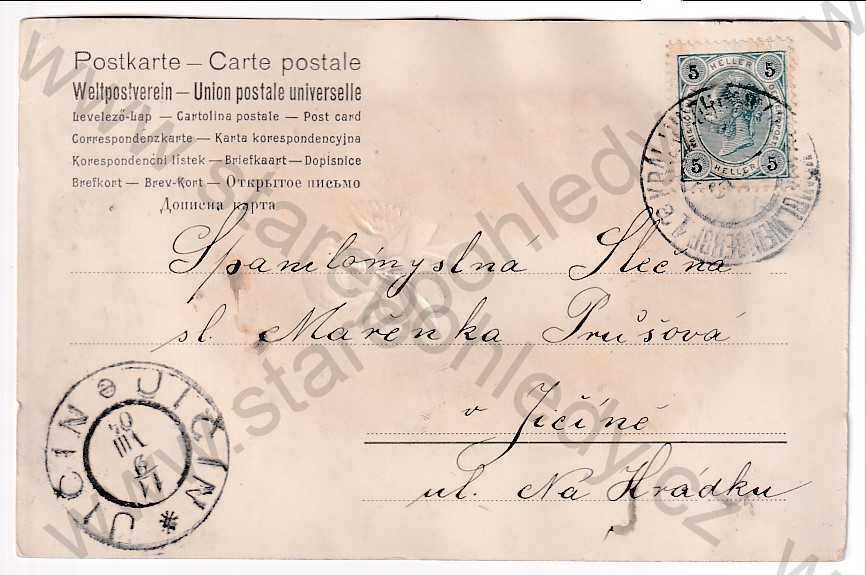 Postkarte — Carte postale
Weltpostverein — Union postale universelle
Levelező-Lap — Cartolina postale — Post card
Correspondenzkarte — Karta korespondencyjna
Korespondenční lístek — Briefkaart — Dopisnice
Brefkort — Brev-Kort — Открытое письмо
Дописна карта
5 HELLER 5
5 HELLER 5
Slečna
sl. Mařenka Průšová
v Jičíně
ul. Na Hrádku
JIČIN * JIČIN
11
9
VIII
04
www.starepohledy.cz